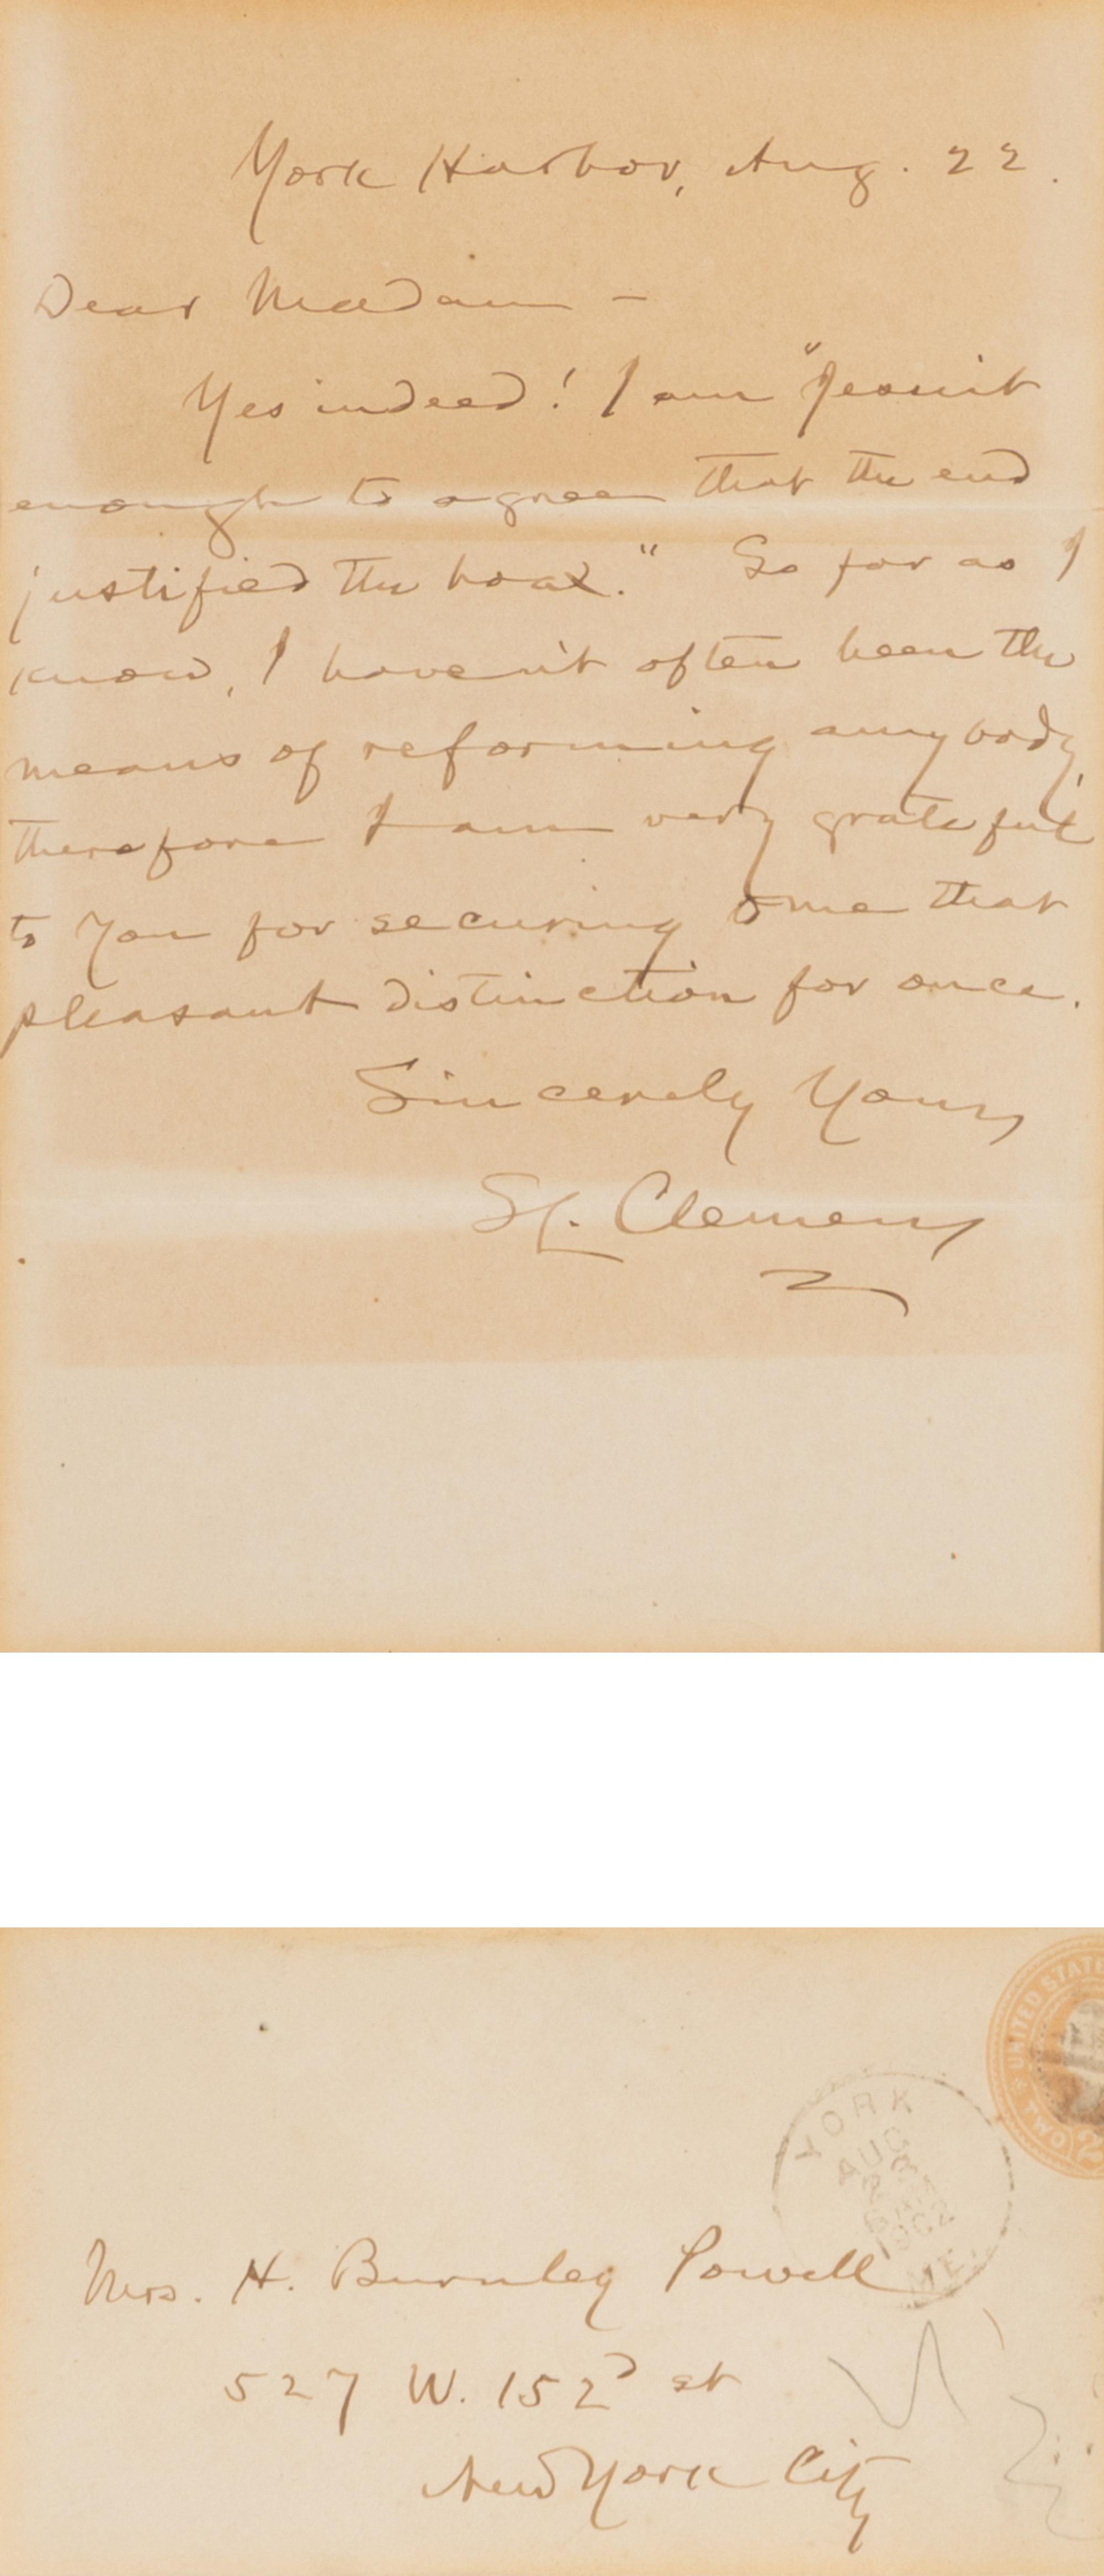 York Harbor, Aug. 22.
Dear Madam —
Yes indeed! I am "Jesuit
enough to agree that the end
justified the hoax." So far as I
know, I haven't often been the
means of reforming anybody,
therefore I am very grateful
to you for securing me that
pleasant distinction for once.
Sincerely Yours
SL. Clemens
UNITED STATE
TWO 2
YORK
AUG
1902
ME.
Mrs. H. Burnley Powell
527 W. 152d st
New York City